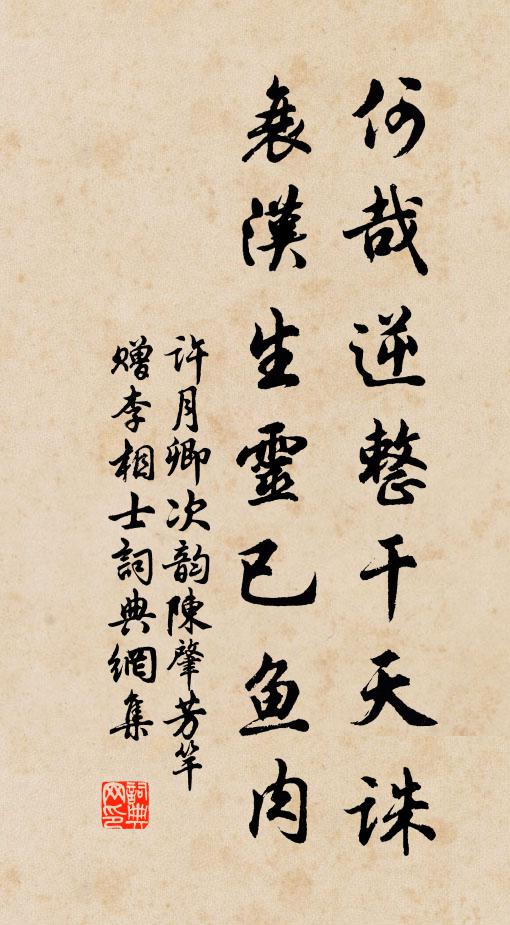 何哉逆整干天诛
衰漢生靈已鱼肉
许月卿次韵陳肇芳竿
赠李相士詞典網集
詞典網印